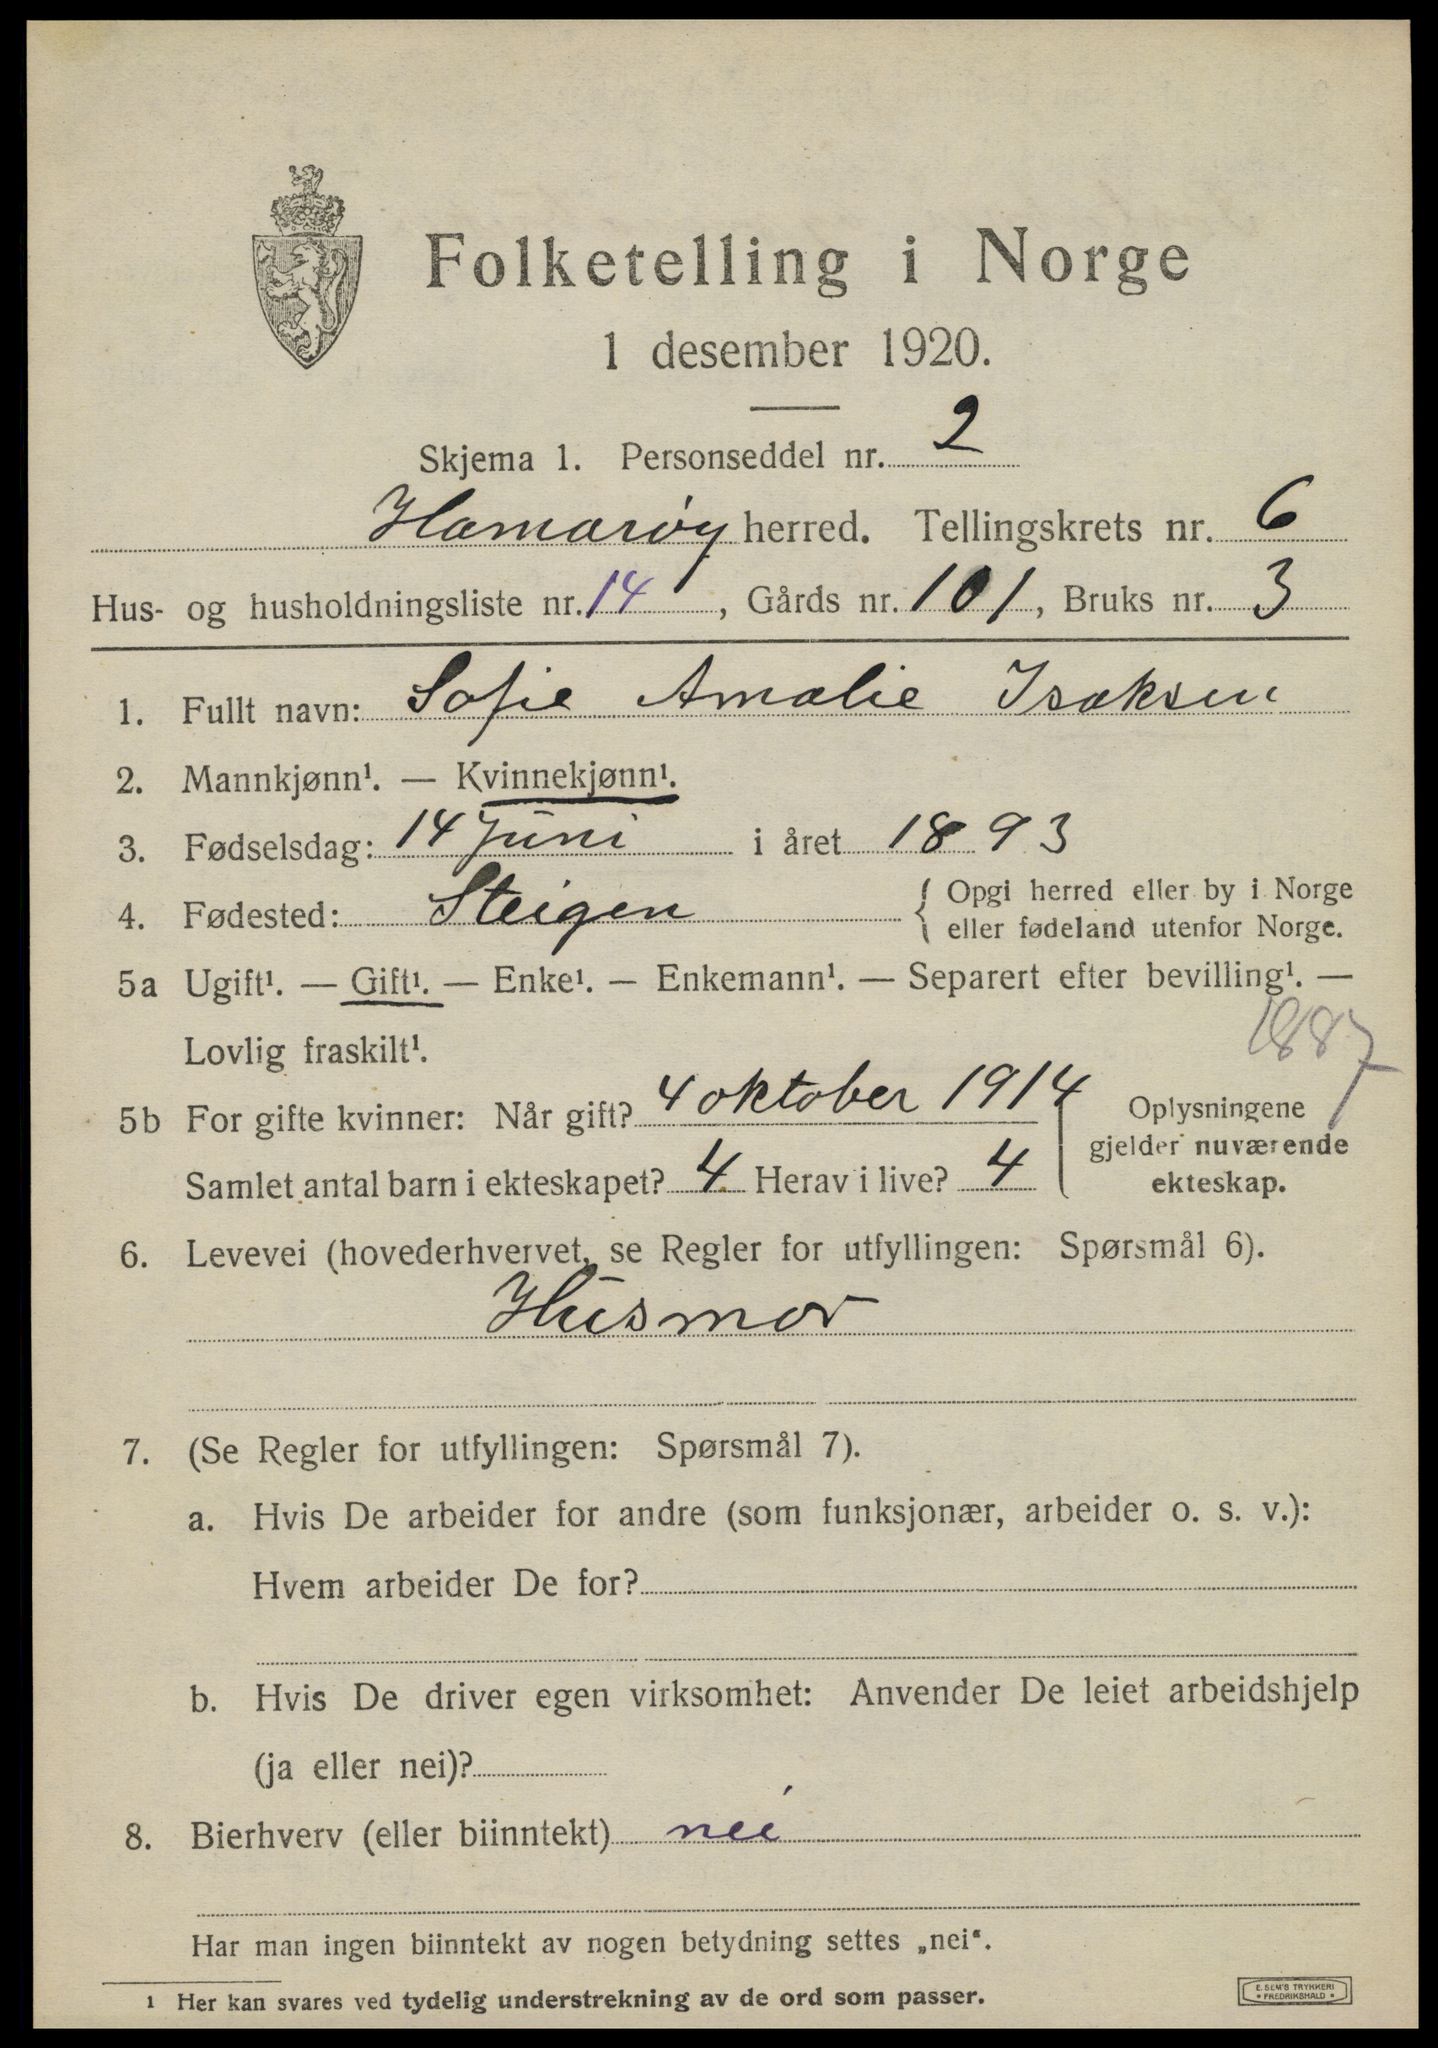 Folketelling i Norge
1 desember 1920.
Skjema 1. Personseddel nr. 2
Hamarøy herred. Tellingskrets nr. 6
Hus- og husholdningsliste nr. 14, Gårds nr. 101, Bruks nr. 3
1. Fullt navn: Sofie Amalie Isaksen
2. Mannkjønn¹. — Kvinnekjønn¹.
3. Fødselsdag: 14 Juni i året 1893
4. Fødested: Steigen { Opgi herred eller by i Norge
eller fødeland utenfor Norge.
5a Ugift¹. — Gift¹. — Enke¹. — Enkemann¹. — Separert efter bevilling¹. —
Lovlig fraskilt¹.
1887
5b For gifte kvinner: Når gift? 4 oktober 1914
Samlet antal barn i ekteskapet? 4. Herav i live? 4
Oplysningene
gjelder nuværende
ekteskap.
6. Levevei (hovederhvervet, se Regler for utfyllingen: Spørsmål 6).
Husmor
7. (Se Regler for utfyllingen: Spørsmål 7).
a. Hvis De arbeider for andre (som funksjonær, arbeider o. s. v.):
Hvem arbeider De for?
b. Hvis De driver egen virksomhet: Anvender De leiet arbeidshjelp
(ja eller nei)?
8. Bierhverv (eller biinntekt) nei
Har man ingen biinntekt av nogen betydning settes „nei“.
¹ Her kan svares ved tydelig understrekning av de ord som passer.
E. SEM'S TRYKKERI
• FREDRIKSHALD •